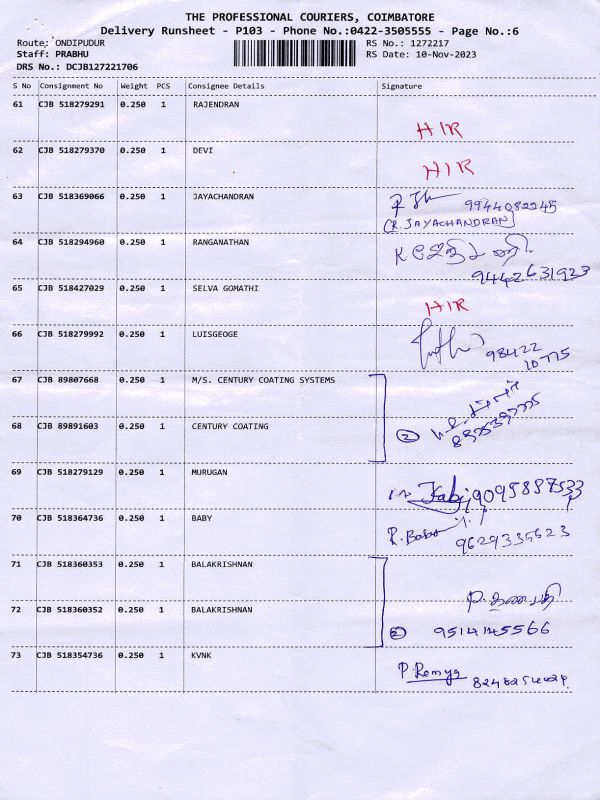 THE PROFESSIONAL COURIERS, COIMBATORE
Delivery Runsheet - P103 - Phone No.:0422-3505555 - Page No.:6
Route: ONDIPUDUR RS No.: 1272217
Staff: PRABHU RS Date: 10-Nov-2023
DRS No.: DCJB127221706
S No Consignment No Weight PCS Consignee Details Signature
61 CJB 518279291 0.250 1 RAJENDRAN
HIR
62 CJB 518279370 0.250 1 DEVI
HIR
63 CJB 518369066 0.250 1 JAYACHANDRAN
9944082245
(R.JAYACHANDRAN)
64 CJB 518294960 0.250 1 RANGANATHAN
9442631923
65 CJB 518427029 0.250 1 SELVA GOMATHI
HIR
66 CJB 518279992 0.250 1 LUISGEOGE
98422
10775
67 CJB 89807668 0.250 1 M/S. CENTURY COATING SYSTEMS
68 CJB 89891603 0.250 1 CENTURY COATING
2
69 CJB 518279129 0.250 1 MURUGAN
70 CJB 518364736 0.250 1 BABY
9629335623
71 CJB 518360353 0.250 1 BALAKRISHNAN
72 CJB 518360352 0.250 1 BALAKRISHNAN
2 9514145566
73 CJB 518354736 0.250 1 KVNK
P. Remya